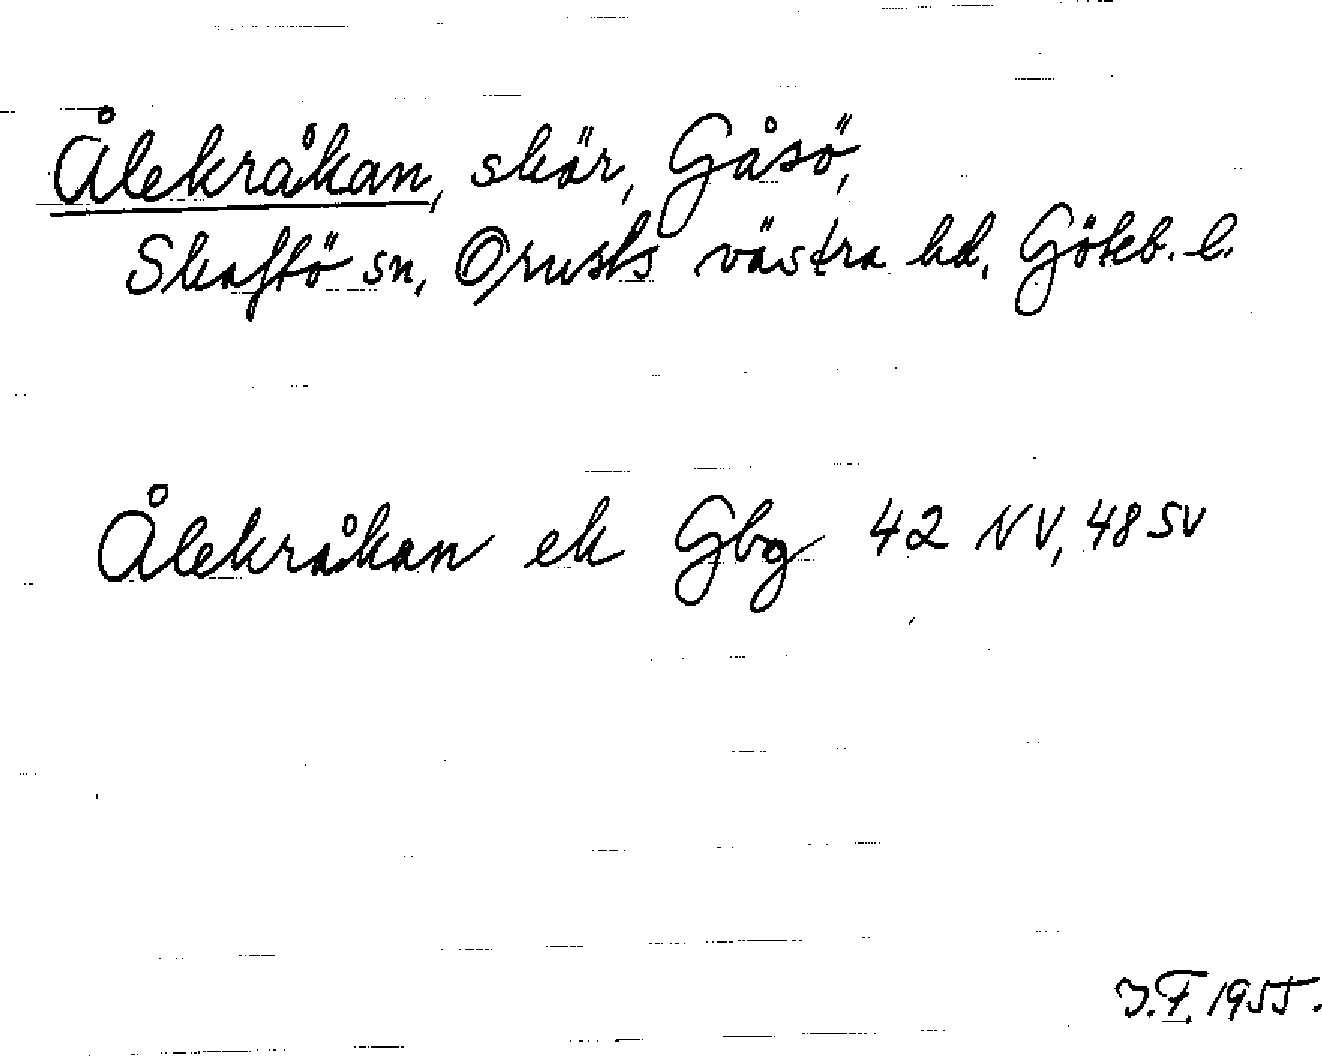 Ålekråkan, skär, Gåsö,
Skaftö sn, Orusts västra hd. Göteb. l.
Ålekråkan ek Gbg 42 NV, 48 SV
J.F. 1955.